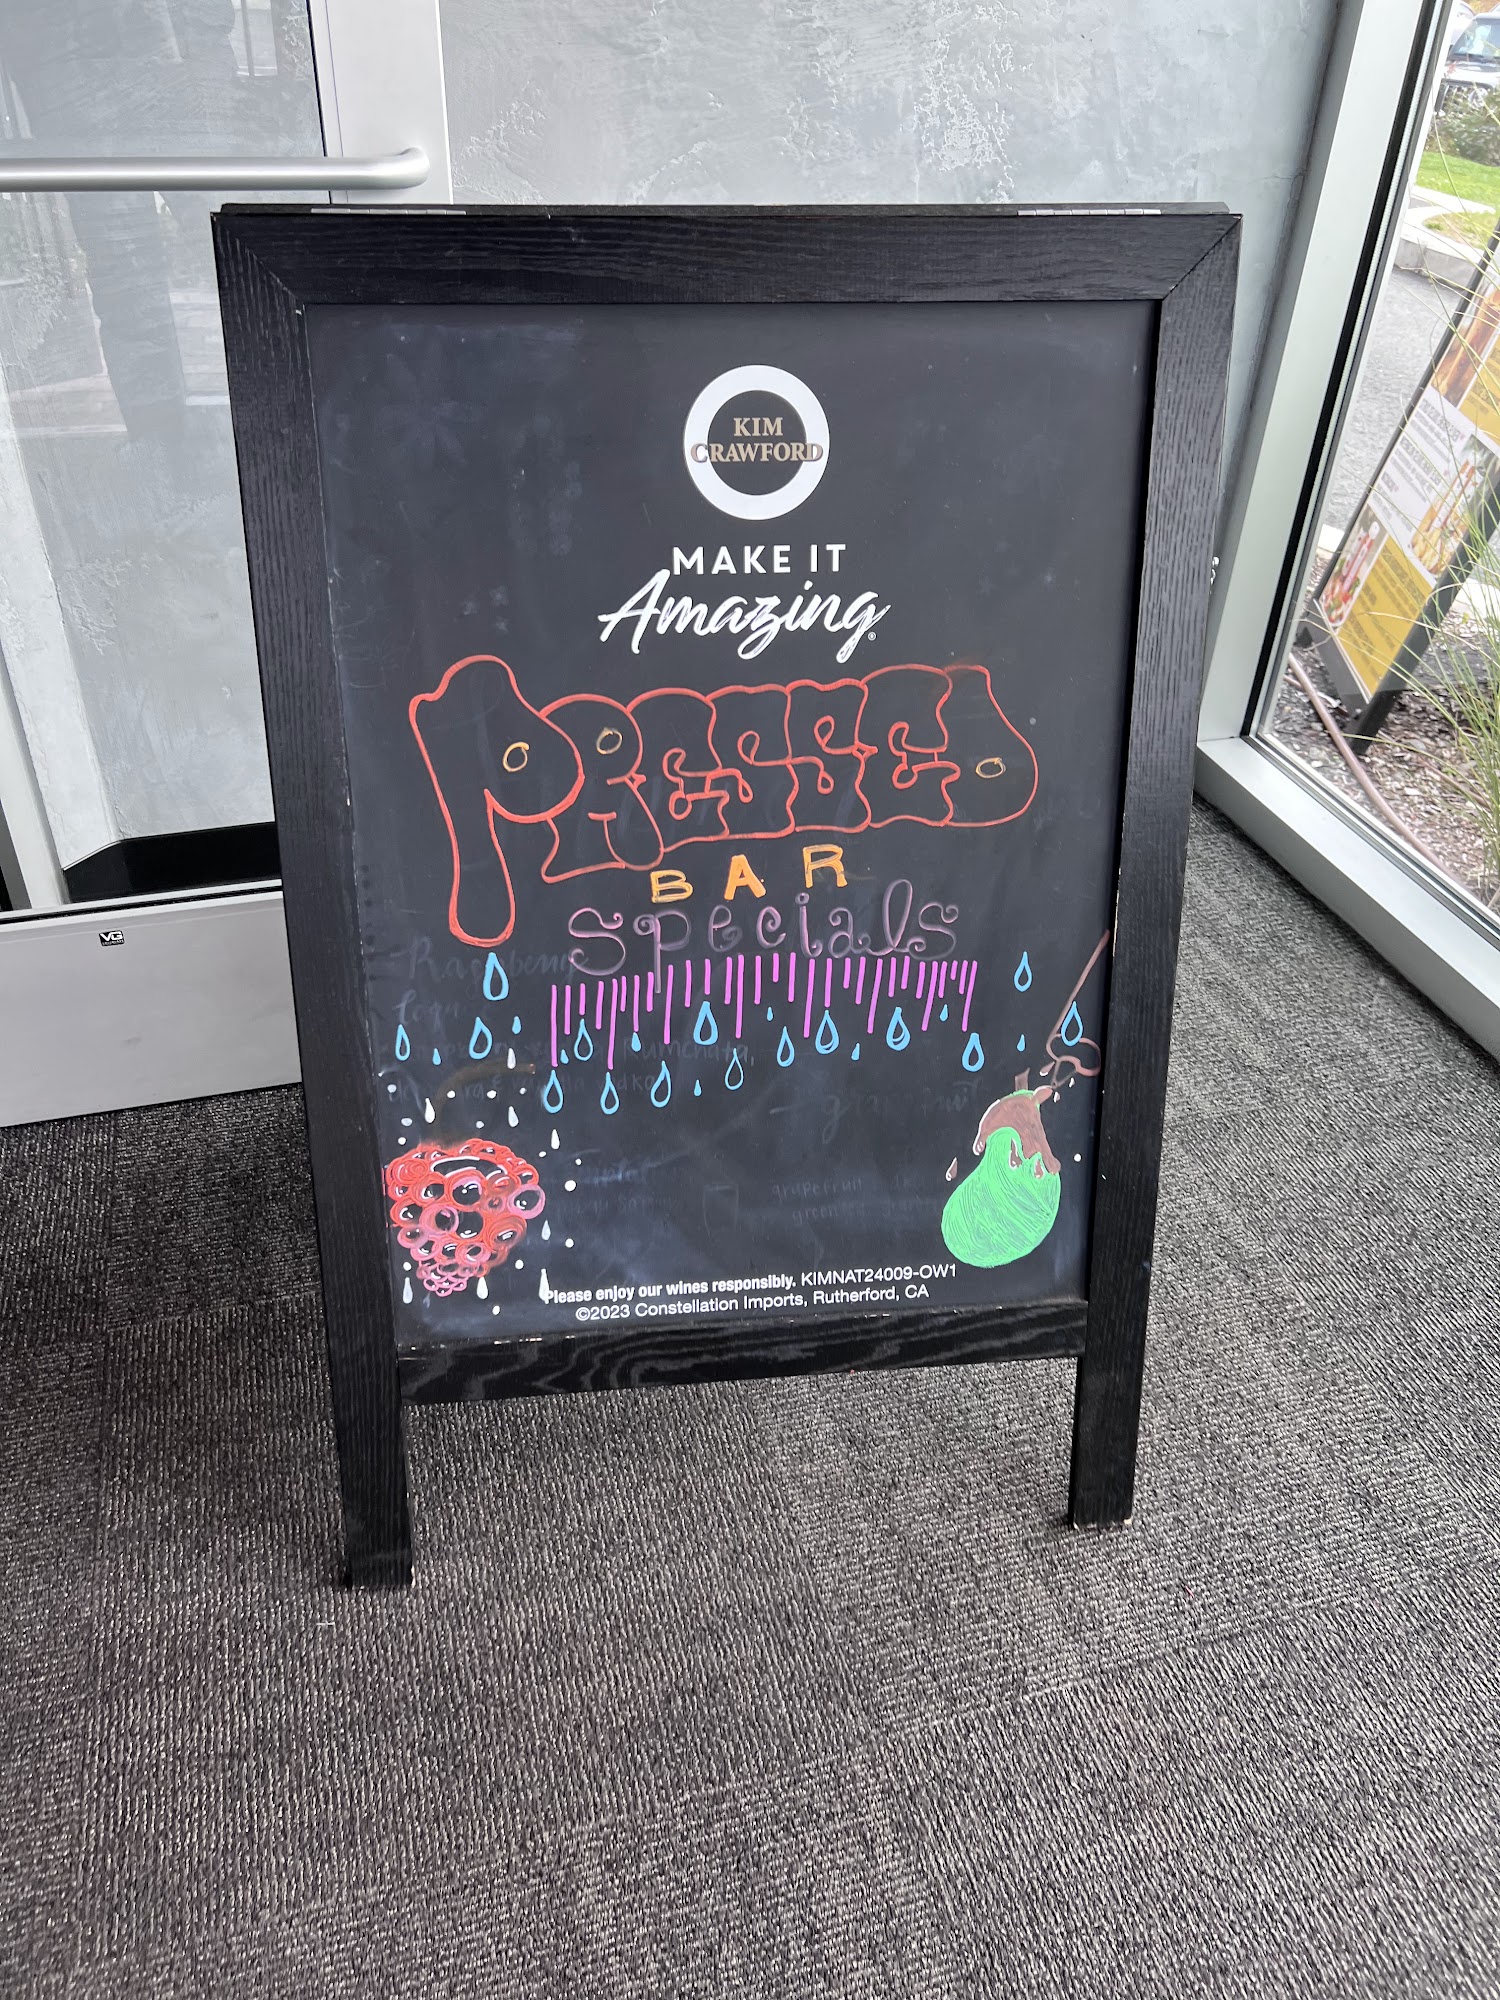 KIM
CRAWFORD
MAKE IT
Amazing®
PRESSED
BAR
Specials
Raspberry
Rumchata
grapefruit
grapefruit
Please enjoy our wines responsibly. KIMNAT24009-OW1
©2023 Constellation Imports, Rutherford, CA
VG